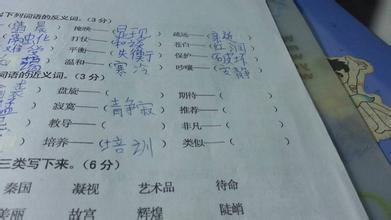 写下列词语的反义词。(3分)
掩映——( 显现 ) 疏远——(
打仗——( 苍白——( 红润
平衡——( 失衡 保护——( 破坏
温和——( 寒冷 吵嚷——( 安静
词语的近义词。(3分)
盘旋——( 期待——(
寂寞——( 推荐——(
教导——( 非凡——(
培养——( 培训 ) 类似——(
三类写下来。(6分)
秦国 凝视 艺术品 待命
美丽 故宫 辉煌 陡峭